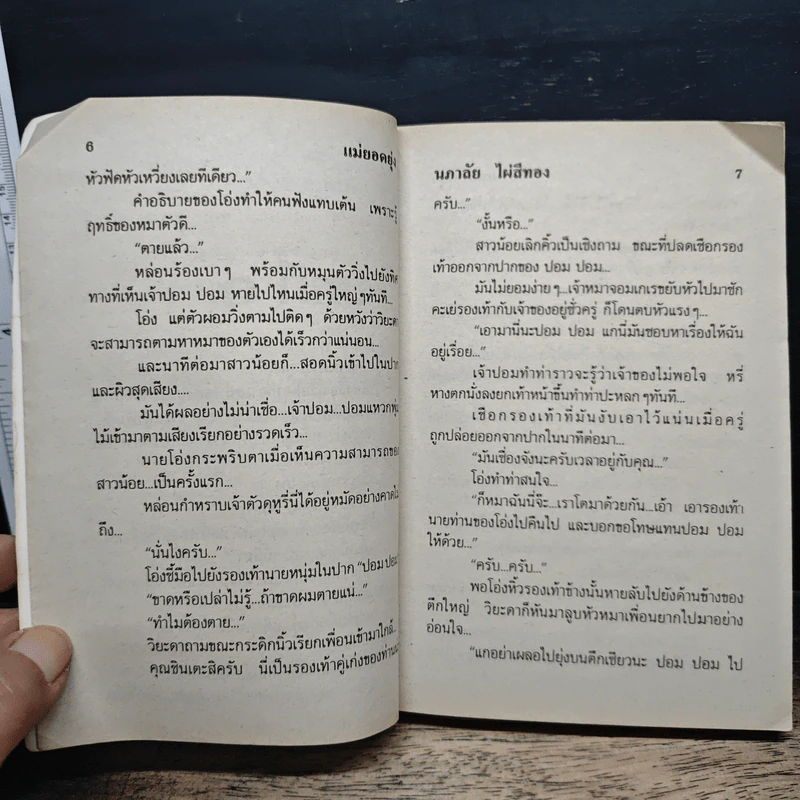 6 แม่ยอดยุ่ง
หัวฟัดหัวเหวี่ยงเลยทีเดียว...”
คำอธิบายของโอ่งทำให้คนฟังแทบเต้น เพราะรู้
ฤทธิ์ของหมาตัวดี...
“ตายแล้ว...”
หล่อนร้องเบาๆ พร้อมกับหมุนตัววิ่งไปยังทิศ
ทางที่เห็นเจ้าปอม ปอม หายไปไหนเมื่อครู่ใหญ่ๆทันที...
โอ่ง แต่ตัวผอมวิ่งตามไปติดๆ ด้วยหวังว่าวิยะดา
จะสามารถตามหาหมาของตัวเองได้เร็วกว่าแน่นอน...
และนาทีต่อมาสาวน้อยก็...สอดนิ้วเข้าไปในปาก
และผิวสุดเสียง....
มันได้ผลอย่างไม่น่าเชื่อ...เจ้าปอม...ปอมแหวกพุ่ม
ไม้เข้ามาตามเสียงเรียกอย่างรวดเร็ว...
นายโอ่งกระพริบตาเมื่อเห็นความสามารถของ
สาวน้อย...เป็นครั้งแรก...
หล่อนกำหราบเจ้าตัวดุหูรี่นี่ได้อยู่หมัดอย่างคาดไม่
ถึง...
“นั่นไงครับ...”
โอ่งชี้มือไปยังรองเท้านายหนุ่มในปาก “ปอม ปอม”
“ขาดหรือเปล่าไม่รู้...ถ้าขาดผมตายแน่...”
“ทำไมต้องตาย...”
วิยะดาถามขณะกระดิกนิ้วเรียกเพื่อนเข้ามาใกล้...
คุณชินเตะสิครับ นี่เป็นรองเท้าคู่เก่งของท่าน
นภาลัย ไผ่สีทอง 7
ครับ...”
“งั้นหรือ...”
สาวน้อยเลิกคิ้วเป็นเชิงถาม ขณะที่ปลดเชือกรอง
เท้าออกจากปากของ ปอม ปอม...
มันไม่ยอมง่ายๆ...เจ้าหมาจอมเกเรขยับหัวไปมาชัก
คะเย่อรองเท้ากับเจ้าของอยู่ชั่วครู่ ก็โดนตบหัวแรงๆ...
“เอามานี่นะปอม ปอม แกนี่มันชอบหาเรื่องให้ฉัน
อยู่เรื่อย...”
เจ้าปอมทำท่าราวจะรู้ว่าเจ้าของไม่พอใจ หรี่
หางตกนั่งลงยกเท้าหน้าขึ้นทำท่าปะหลกๆทันที...
เชือกรองเท้าที่มันงับเอาไว้แน่นเมื่อครู่
ถูกปล่อยออกจากปากในนาทีต่อมา...
“มันเชื่องจังนะครับเวลาอยู่กับคุณ...”
โอ่งทำท่าสนใจ...
“ก็หมาฉันนี่จ๊ะ...เราโตมาด้วยกัน...เอ้า เอารองเท้า
นายท่านของโอ่งไปคืนไป และบอกขอโทษแทนปอม ปอม
ให้ด้วย...”
“ครับ...ครับ...”
พอโอ่งหิ้วรองเท้าข้างนั้นหายลับไปยังด้านข้างของ
ตึกใหญ่ วิยะดาก็หันมาลูบหัวหมาเพื่อนยากไปมาอย่าง
อ่อนใจ...
“แกอย่าเผลอไปยุ่งบนตึกเชียวนะ ปอม ปอม ไป